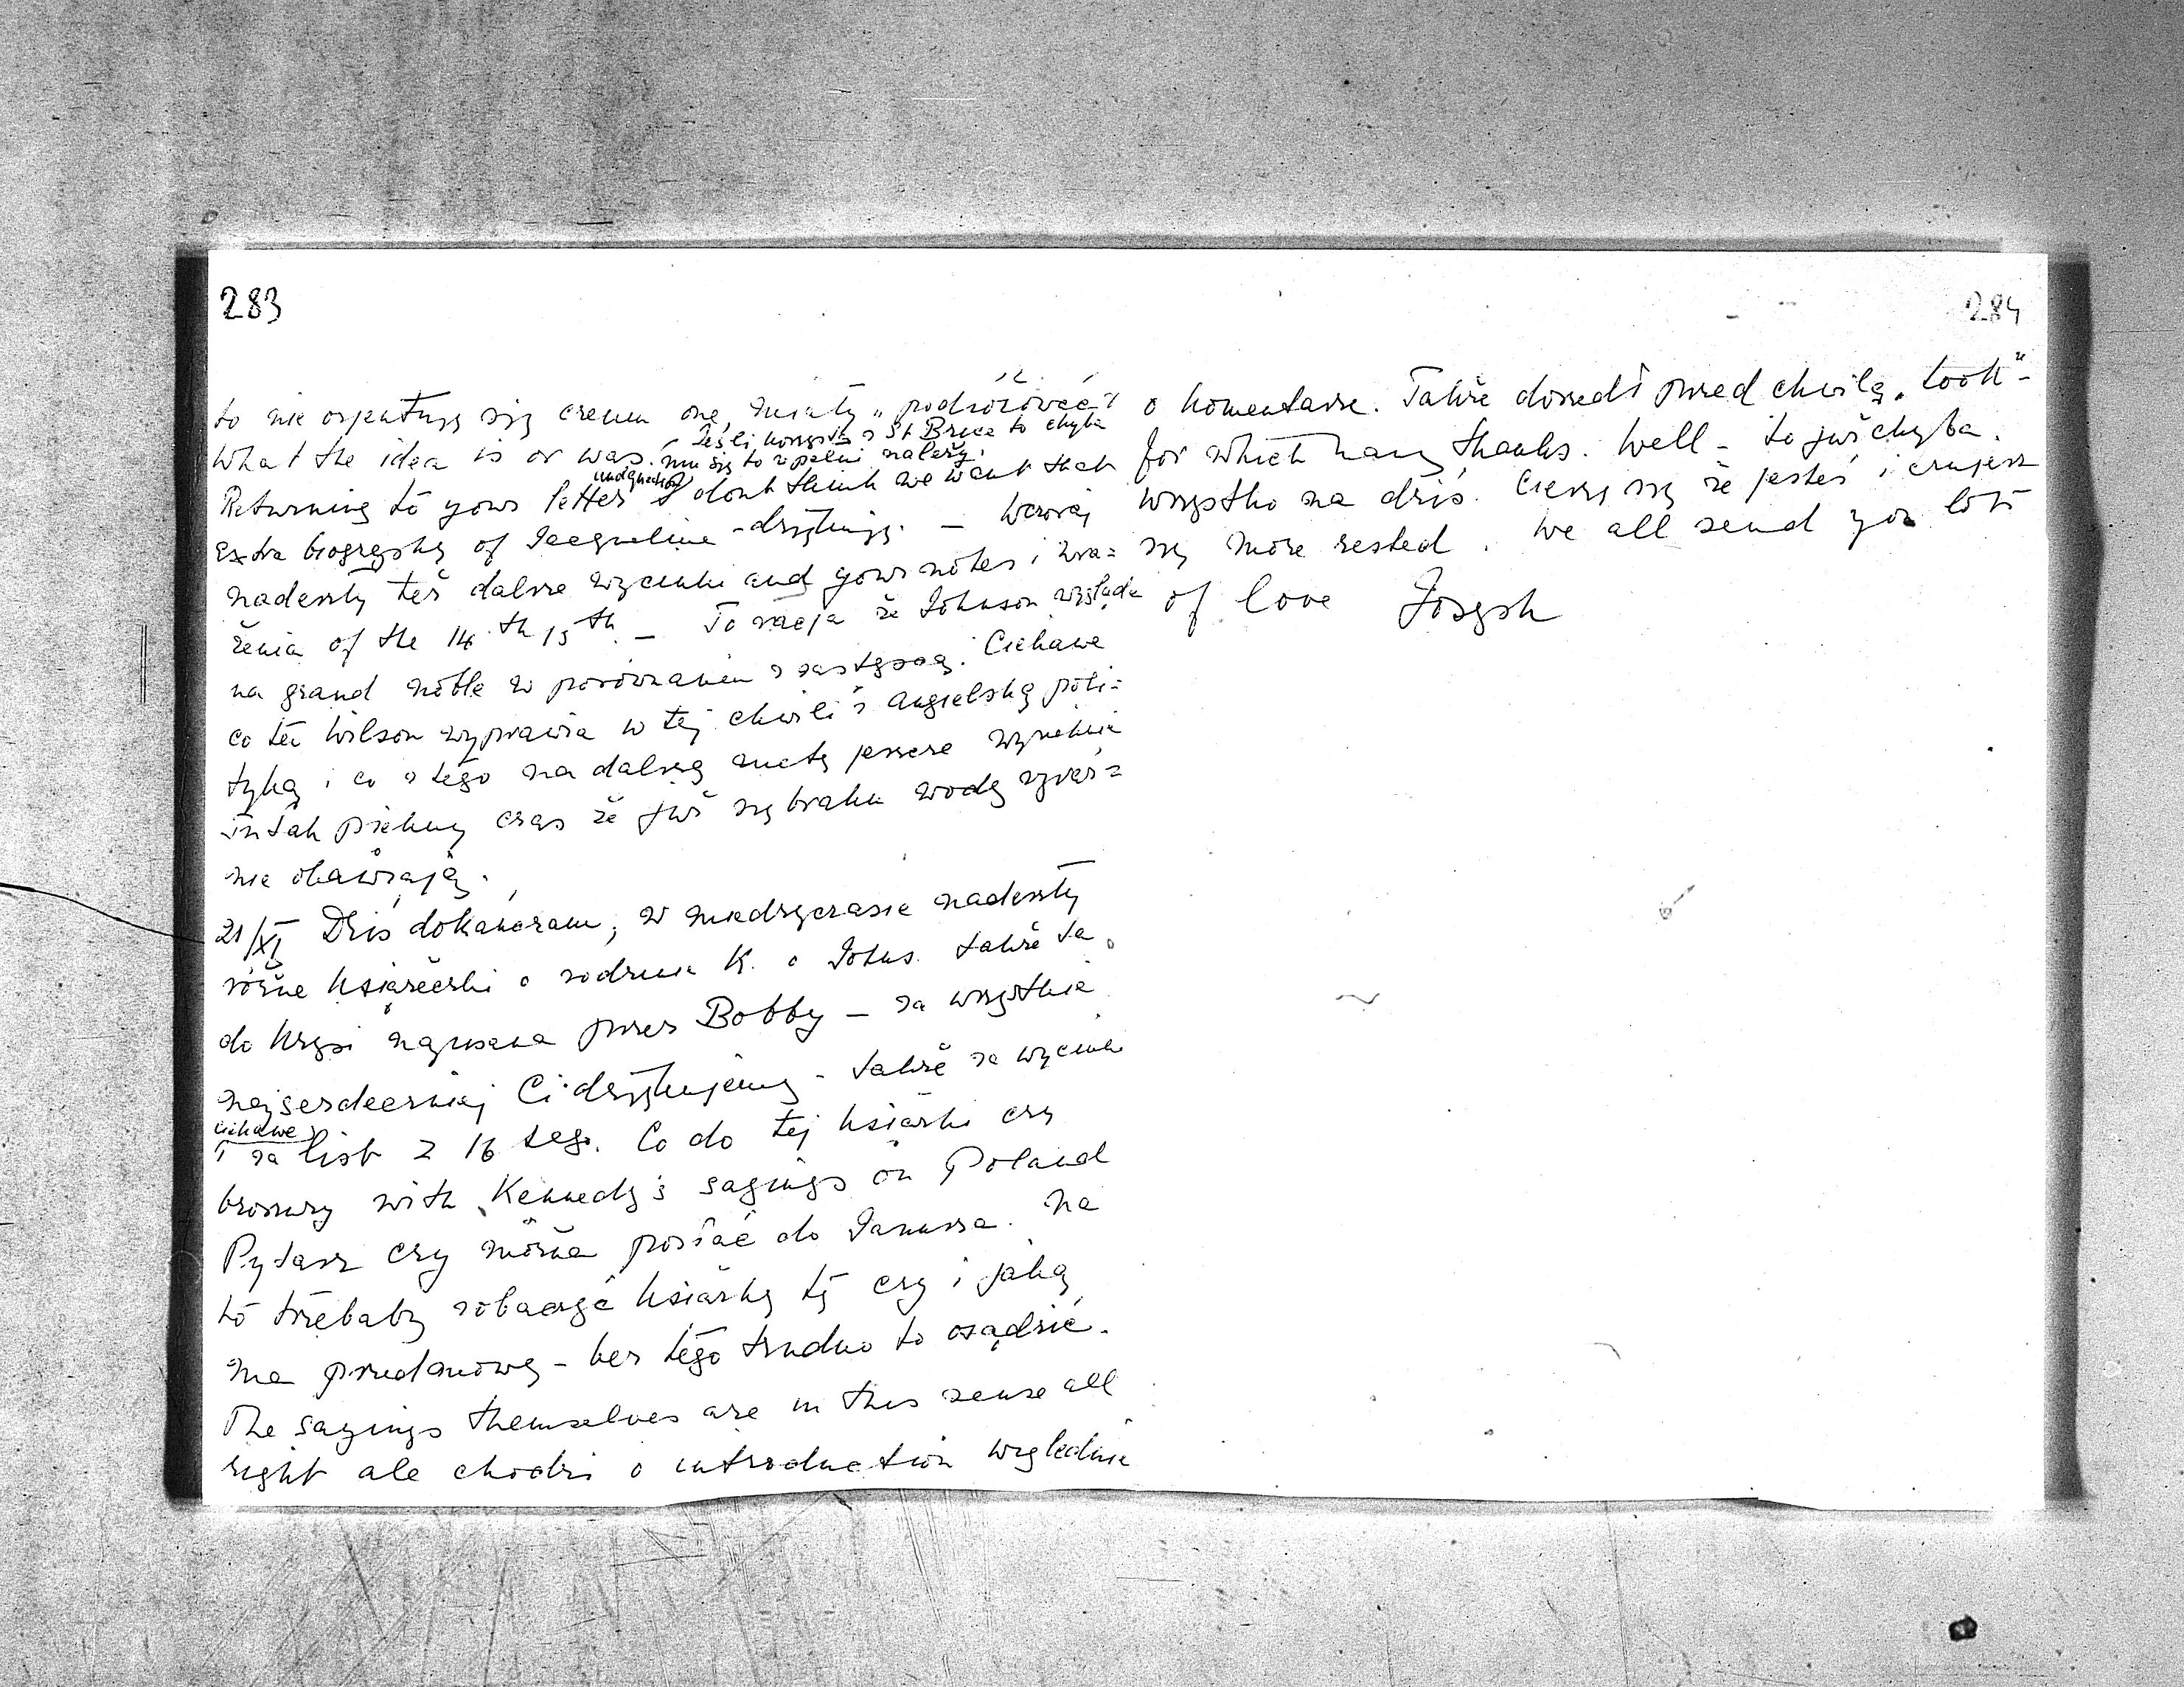 283
to nie orjentuję się czemu one miały "podróżować"?
What the idea is or was. Jeśli korzysta z St Brice to chyba
mu się to w pełni należy.
Returning to your letter I dont think we want that
extra biography of Jacqueline - dziękuję. - Wczoraj
nadeszły też dalsze wycinki and your notes i wra=
żenia of the 14th 15th. - To racja że Johnson wygląda
na grand noble w porównaniu z zastępcą. Ciekawe
co ten Wilson wyprawia w tej chwili z angielską poli=
tyką i co z tego na dalszą metę jeszcze wyniknie
Tu tak piękny czas że już się braku wody
nie obawiają.
21/XI Dziś dokańczam, w międzyczasie nadeszły
różne książeczki o rodzinie K. o Johns. także ta
do Krysi napisana przez Bobby - za wszystkie
najserdeczniej Ci dziękujemy - także za wycinki
ciekawe
i za list z 16 tego. Co do tej książki czy
broszury with Kennedy's sayings on Poland
Pytasz czy można posłać do Janusza. Na
to trzebaby zobaczyć książkę tę czy i jaką
ma przedmowę - bez tego trudno to osądzić.
The sayings themselves are in this sense all
right ale chodzi o introduction względnie
284
o komentarze. Także doszedł przed chwilą "Look" -
for which many thanks. Well - to już chyba
wszystko na dziś. Cieszę się że jesteś i czujesz
się more rested. We all send you lots
of love Joseph